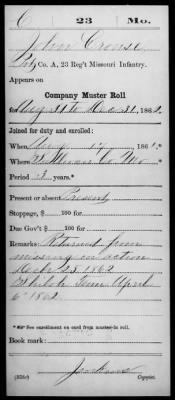 C 23 Mo.
John Crouse
Pvt, Co. A, 23 Reg't Missouri Infantry.
Appears on
Company Muster Roll
for Aug 31 to Dec 31, 1862.
Joined for duty and enrolled:
When Aug 17, 1861.*
Where Co Mo
Period 3 years.*
Present or absent Present
Stoppage, $ 100 for
Due Gov't $ 100 for
Remarks: Returned from
missing in action
23 1862
April
6" 1862
*See enrollment on card from muster-in roll.
Book mark:
(358c) Copyist.